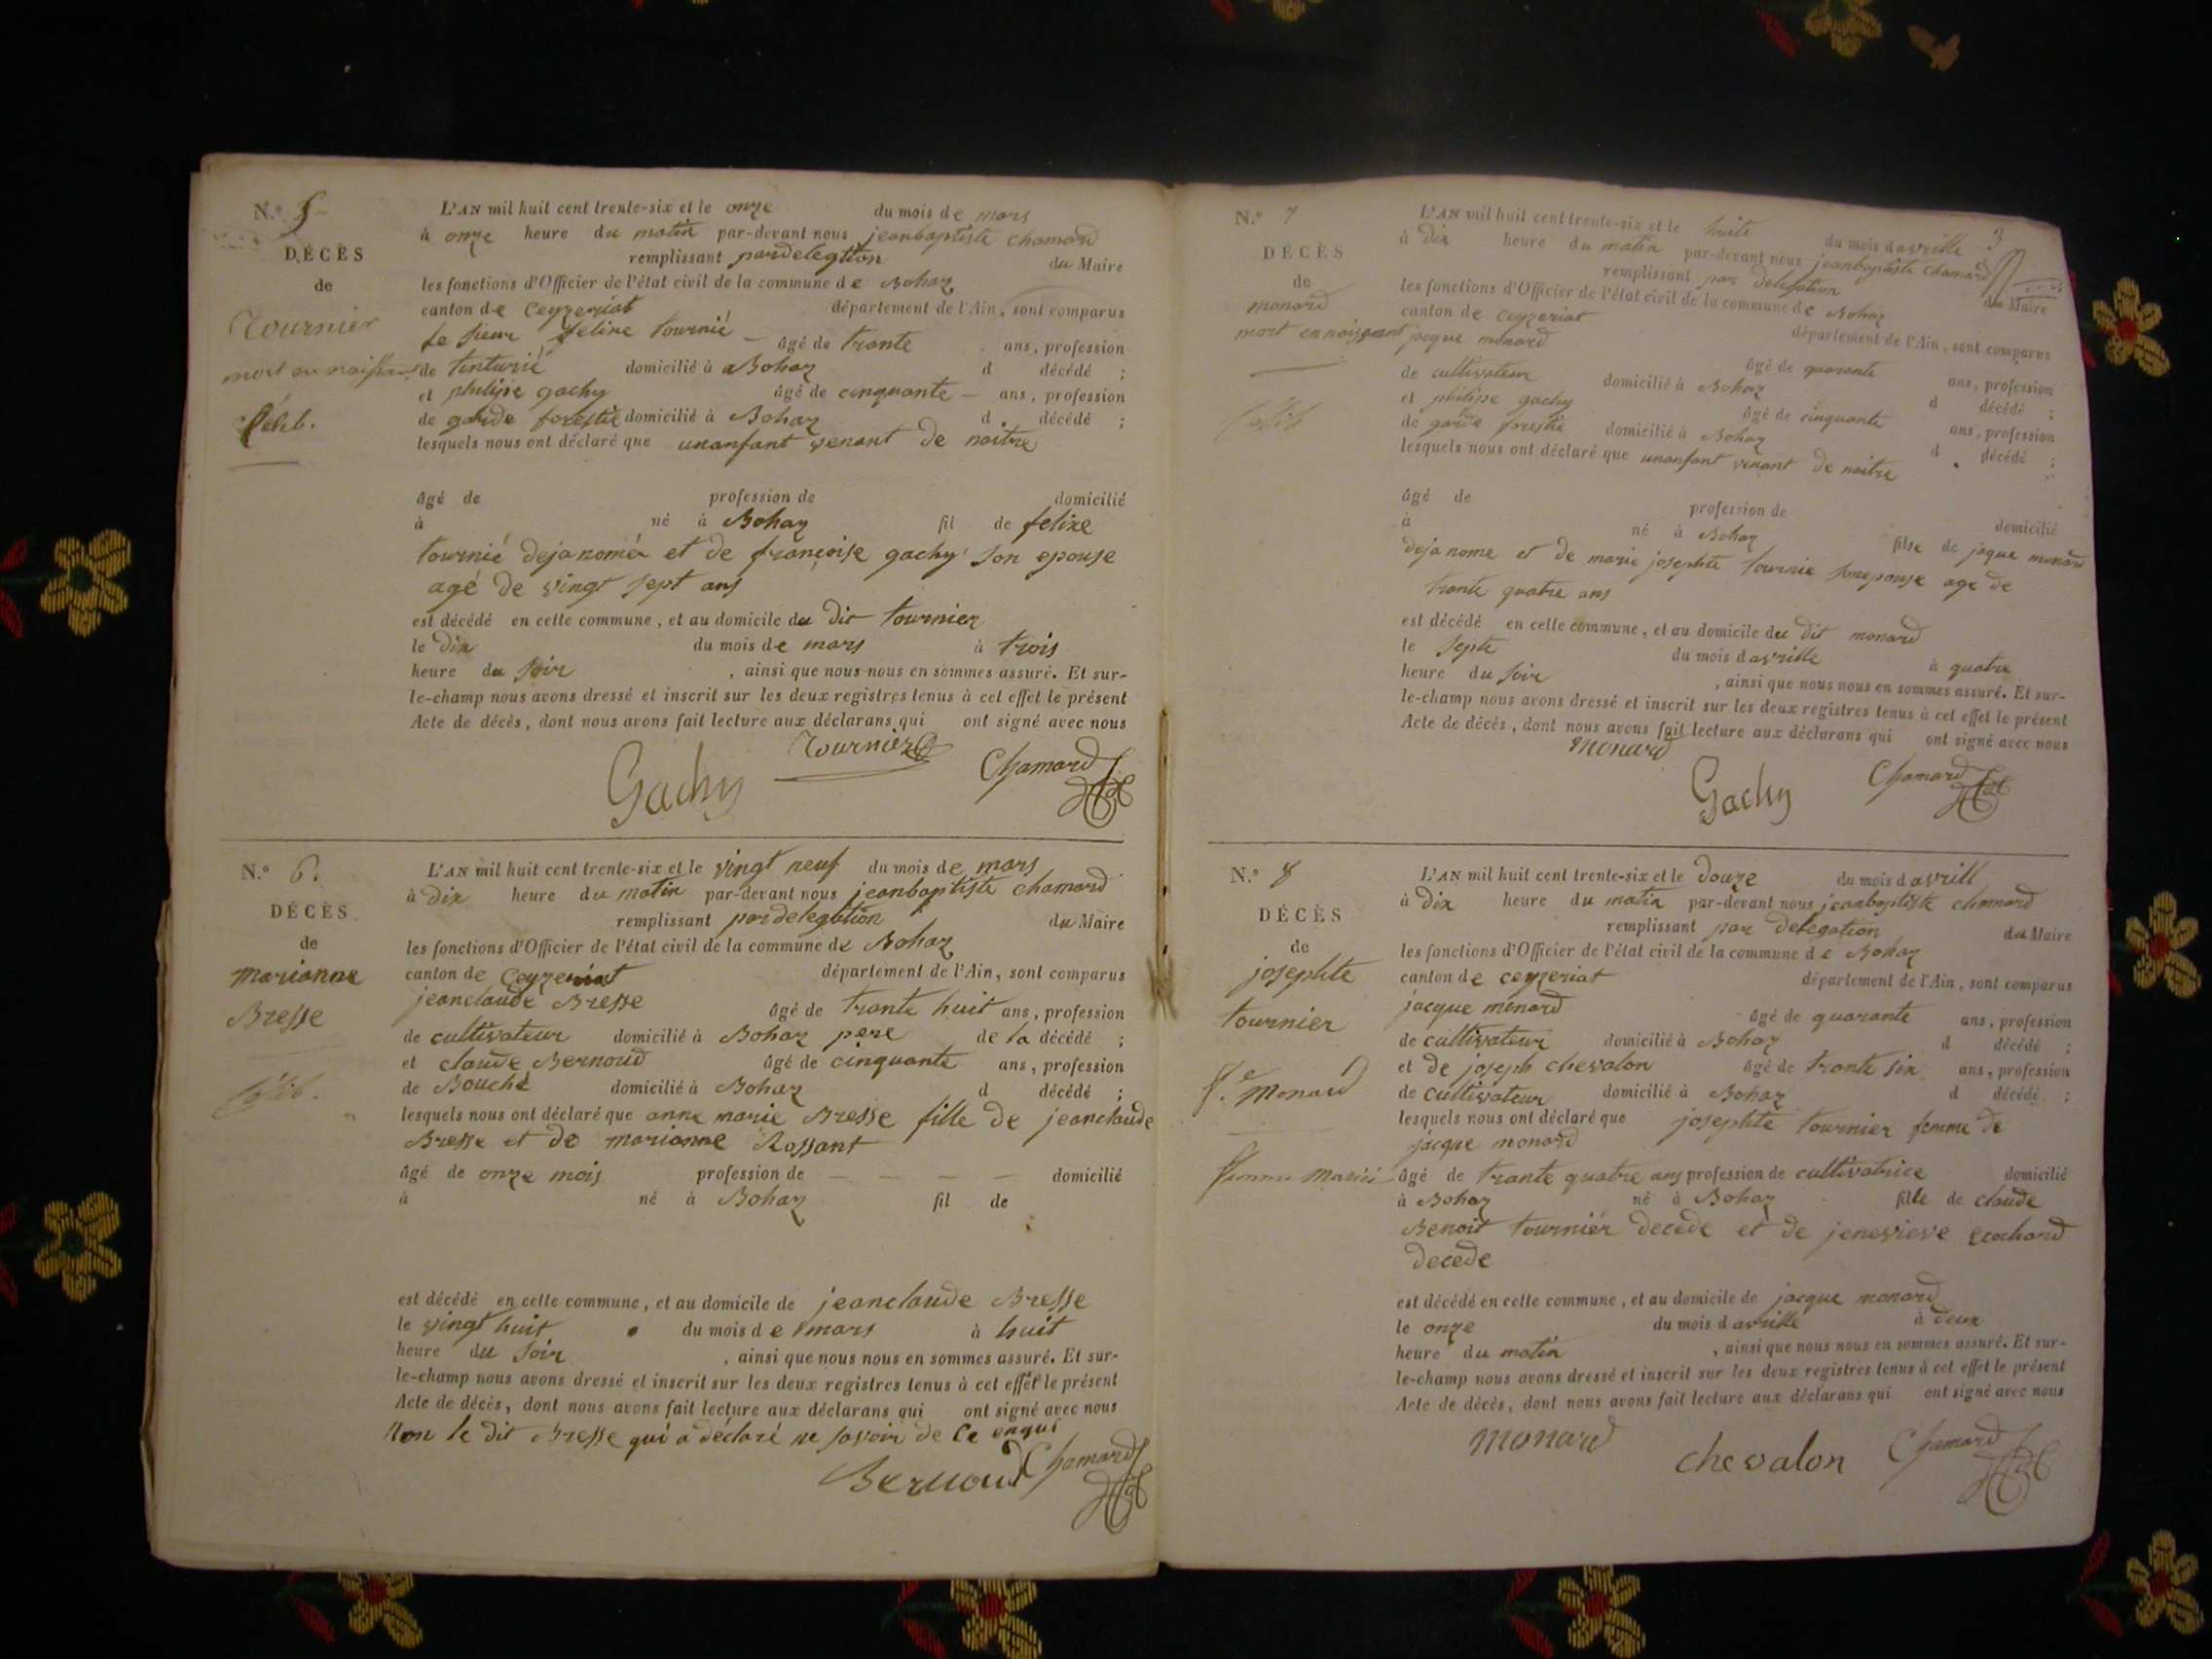 N.° 5
DÉCÈS
de
Tournier
mort en naissant
Célib.
L'AN mil huit cent trente-six et le onze du mois de mars
à onze heure du matin par-devant nous jeanbaptiste chamard
remplissant pardelegation du Maire
les fonctions d'Officier de l'état civil de la commune de Bohaz
canton de Ceyzeriat département de l'Ain, sont comparus
le sieur felixe tournié âgé de trante ans, profession
de tinturié domicilié à Bohaz d décédé ;
et philipe gachy âgé de cinquante ans, profession
de garde forestié domicilié à Bohaz d décédé ;
lesquels nous ont déclaré que unanfant venant de naitre
âgé de profession de domicilié
à né à Bohaz fil de felixe
tournié dejanomér et de françoise gachy son epouse
agé de vingt sept ans
est décédé en celle commune, et au domicile du dit tournier
le dix du mois de mars à trois
heure du soir , ainsi que nous nous en sommes assuré. Et sur-
le-champ nous avons dressé et inscrit sur les deux registres tenus à cet effet le présent
Acte de décès, dont nous avons fait lecture aux déclarans qui ont signé avec nous
Gachy Tournier Chamard
N.° 6.
DÉCÈS
de
marianne
Bresse
Célib.
L'AN mil huit cent trente-six et le vingt neuf du mois de mars
à dix heure du matin par-devant nous jeanbaptiste chamard
remplissant pardelegation du Maire
les fonctions d'Officier de l'état civil de la commune de Bohaz
canton de Ceyzeriat département de l'Ain, sont comparus
jeanclaude Bresse âgé de trante huit ans, profession
de cultivateur domicilié à Bohaz pere de la décédé ;
et claude Bernoud âgé de cinquante ans, profession
de Bouché domicilié à Bohaz d décédé ;
lesquels nous ont déclaré que anne marie Bresse fille de jeanclaude
Bresse et de marianne Rossant
âgé de onze mois profession de domicilié
à né à Bohaz fil de
est décédé en celle commune, et au domicile de jeanclaude Bresse
le vingt huit du mois de mars à huit
heure du soir , ainsi que nous nous en sommes assuré. Et sur-
le-champ nous avons dressé et inscrit sur les deux registres tenus à cet effet le présent
Acte de décès, dont nous avons fait lecture aux déclarans qui ont signé avec nous
Non le dit Bresse qui a déclaré ne savoir de ce enquis
Bernoud Chamard
3
N.° 7
DÉCÈS
de
monard
mort en naissant
Célib
L'AN mil huit cent trente-six et le huite du mois d avrille
à dix heure du matin par-devant nous jeanbaptiste chamard
remplissant par delegation du Maire
les fonctions d'Officier de l'état civil de la commune de Bohaz
canton de ceyzeriat département de l'Ain, sont comparus
jaque monard âgé de quarante ans, profession
de cultivateur domicilié à Bohaz d décédé ;
et philipe gachy âgé de cinquante ans, profession
de garde frestié domicilié à Bohaz d décédé ;
lesquels nous ont déclaré que unanfant venant de naitre
âgé de profession de domicilié
à né à Bohaz fille de jaque monard
deja nome et de marie josephte tournie sonepouse age de
trante quatre ans
est décédé en celle commune, et au domicile du dit monard
le septe du mois d avrille à quatre
heure du soir , ainsi que nous nous en sommes assuré. Et sur-
le-champ nous avons dressé et inscrit sur les deux registres tenus à cet effet le présent
Acte de décès, dont nous avons fait lecture aux déclarans qui ont signé avec nous
monard Gachy Chamard
N.° 8
DÉCÈS
de
josephte
tournier
f.e monard
femme mariée
L'AN mil huit cent trente-six et le douze du mois d avrill
à dix heure du matin par-devant nous jeanbaptiste chamard
remplissant par delegation du Maire
les fonctions d'Officier de l'état civil de la commune de Bohaz
canton de ceyzeriat département de l'Ain, sont comparus
jacque monard âgé de quarante ans, profession
de cultivateur domicilié à Bohaz d décédé ;
et de joseph chevalon âgé de trante six ans, profession
de cultivateur domicilié à Bohaz d décédé ;
lesquels nous ont déclaré que josephte tournier femme de
jacque monard
âgé de trante quatre ans profession de cultivatrice domicilié
à Bohaz né à Bohaz fille de claude
Benoit tournier decede et de jenevieve
decede
est décédé en celle commune, et au domicile de jacque monard
le onze du mois d avrille à deux
heure du matin , ainsi que nous nous en sommes assuré. Et sur-
le-champ nous avons dressé et inscrit sur les deux registres tenus à cet effet le présent
Acte de décès, dont nous avons fait lecture aux déclarans qui ont signé avec nous
monard chevalon Chamard